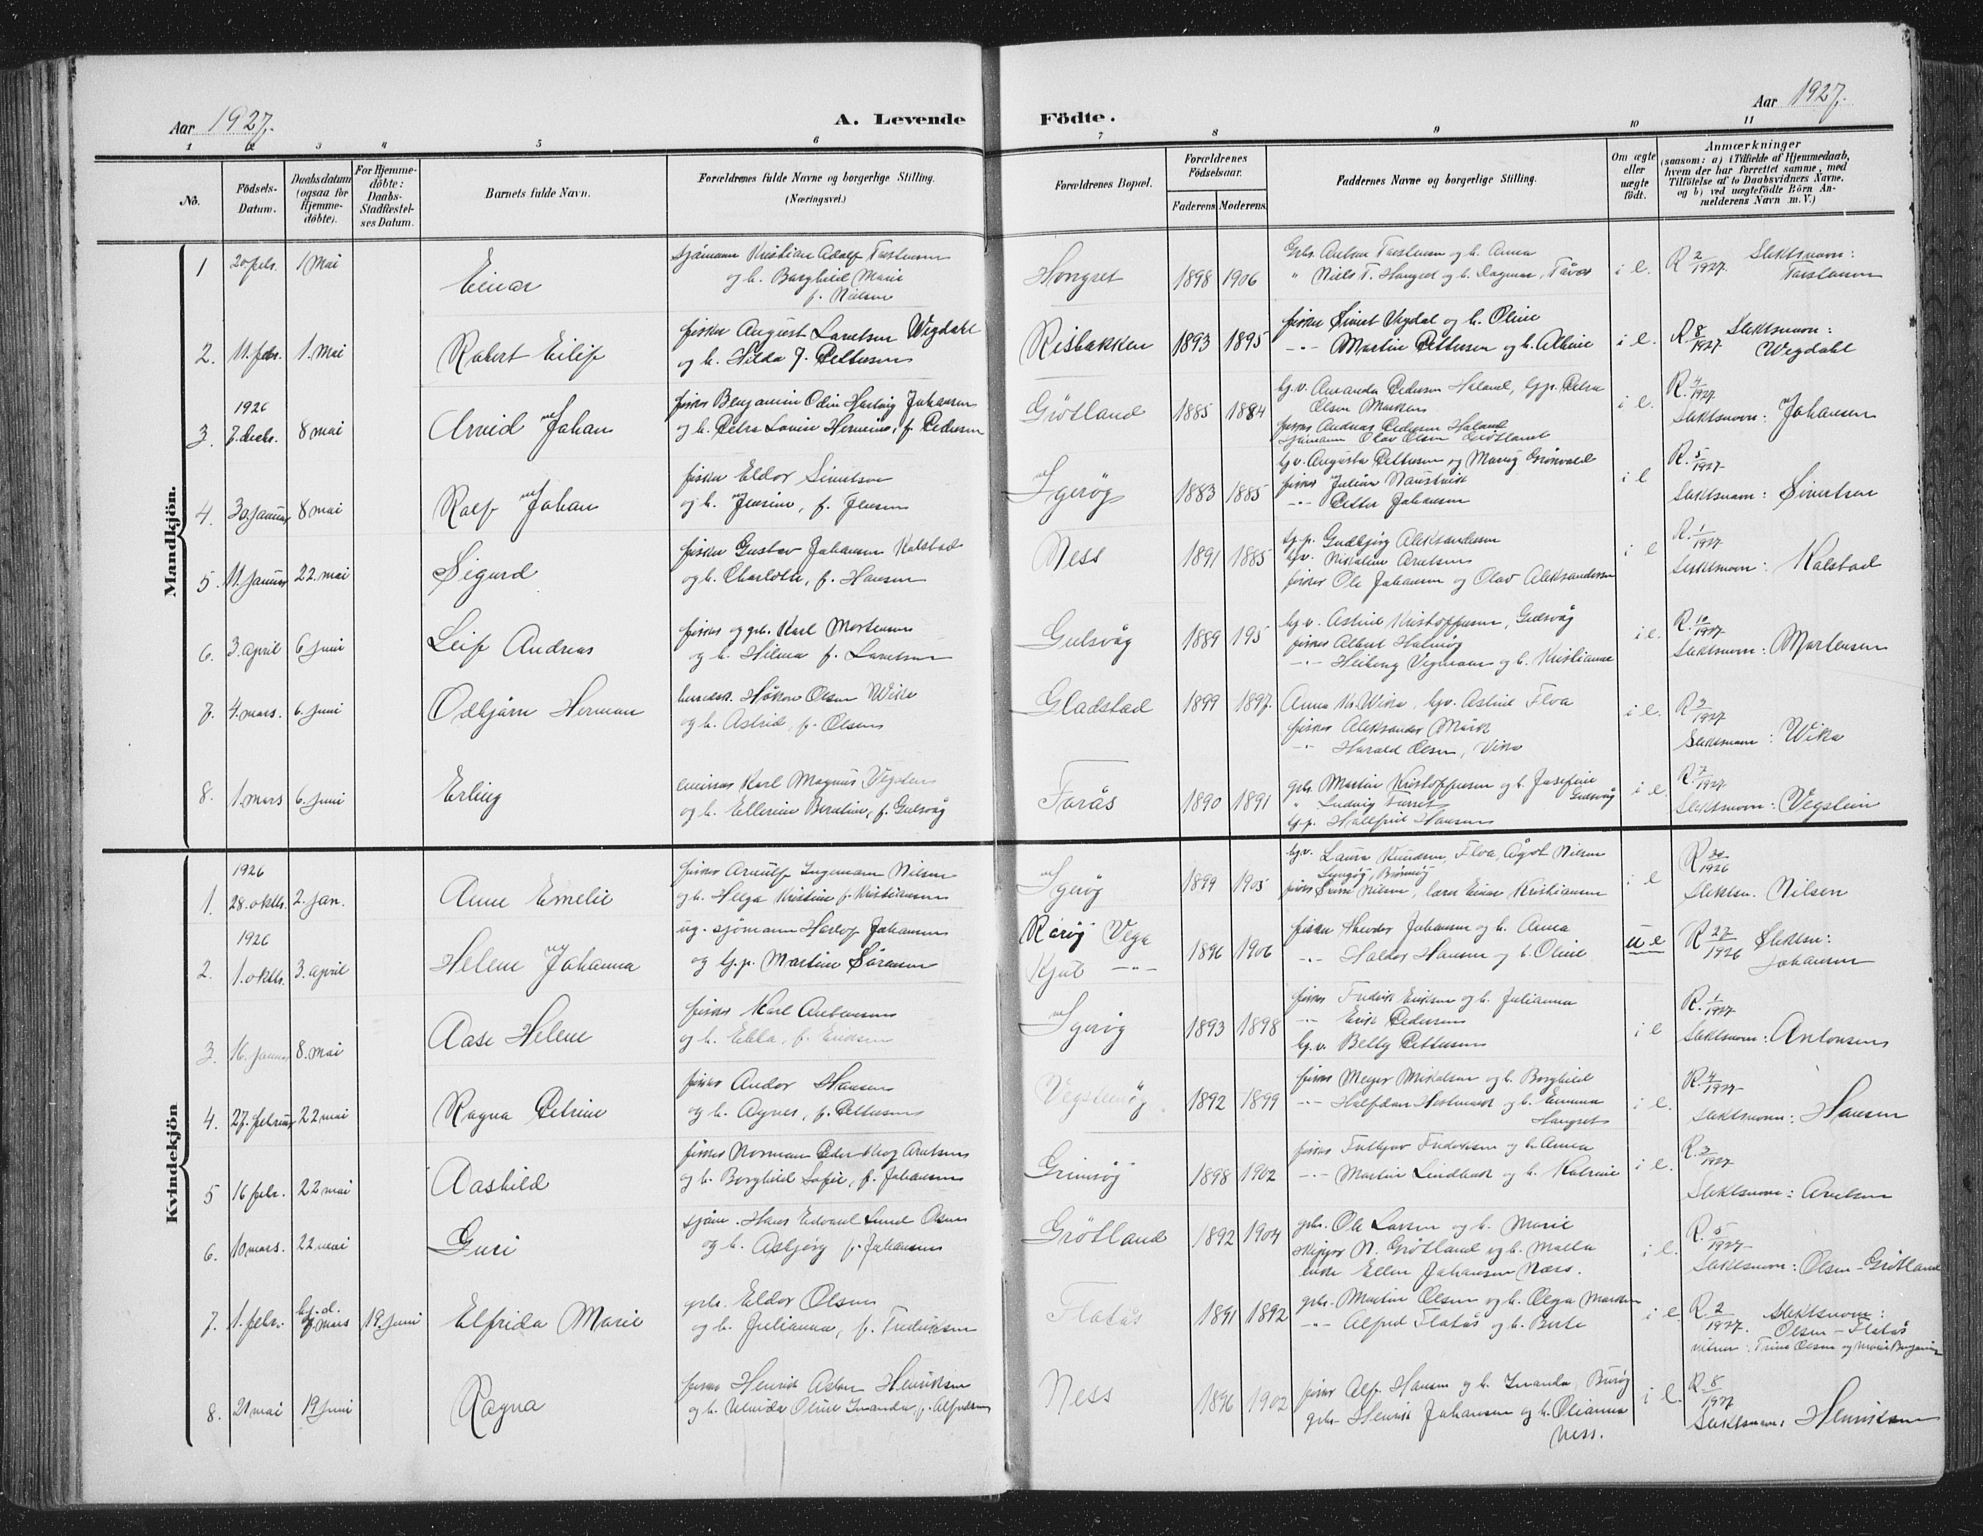 Aar 1927.
A. Levende Födte.
Aar 1927.
1 2 3 4 5 6 7 8 9 10 11
No.
Födsels-Datum.
Daabsdatum (ogsaa for Hjemme-döbte).
For Hjemme-döbte: Daabs-Stadfæstel-ses Datum.
Barnets fulde Navn.
Forældrenes fulde Navne og borgerlige Stilling. (Næringsvei.)
Forældrenes Bopæl.
Forældrenes Födselsaar.
Faderens. Moderens.
Faddernes Navne og borgerlige Stilling.
Om ægte eller uægte født.
Anmærkninger
(saasom: a) i Tilfælde af Hjemmedaab, hvem der har forrettet samme, med Tilföielse af to Daabsvidners Navne, og b) ved uægtefödte Börn An-melderens Navn m. V.)
Mandkjön.
1 20 febr. 1 Mai
Einar
sjömann Kristian Adolf Torstensen
og h. Borghild Marie
f. Nielsen
Hongset 1898 1906
Grb. Anton Torstensen og h. Anna
" Niels T. Hongset og h. Dagmar,
i e. R 2/1927. Slektsnavn:
Torstensen
2. 11. febr. 1. Mai
Robert Eilif
fisker August Lorntsen Wegdahl
og h. Hilda J. Pettersen
Risbakken 1893 1895
fisker Sivert Vegdal og h. Oline
-"- Martin Pettersen og h. Albine
i e. R 8/1927 Slektsnavn:
Wegdahl
1926
3. 7. decbr. 8 mai
Arvid Johan
fisker Benjamin Odin Hartvig Johansen
og h. Petra Lovise Hermine, f. Pedersen
Grötland 1885 1884
hj.v. Amanda Pedersen Haland, hjp. Petra
Olsen Marken
fisker Andreas Pedersen Haland
sjömann Olav Olsen Grötland
i e. R. 4/1927.
Slektsnavn: Johansen
4. 30. januar 8 mai
Rolf Johan
fisker Eldor Sivertsen
og h. Jensine, f. Jensen
Ygeröy 1883 1885
hj.v. Augusta Pettersen og Margit Grönvald
fisker Julius Naustvik
-"- Petter Johansen
i e R. 5/1927.
Slektsnavn: Sivertsen
5. 11. januar 22. mai
Sigurd
fisker Gustav Johansen Kalstad
og h. Charlotte, f. Hansen
Ness 1891 1885
hj.p. Gudbjörg Aleksandersen
hj.v. Nikoline Arntsen
fisker Ole Johansen og Olav Aleksandersen
i e R. 1/1927.
Slektsnavn: Kalstad
6. 3. april 6 juni
Leif Andreas
fisker og grb. Karl Mortensen
og h. Hilma f. Lorntsen
Gulsvåg 1889 195
hj.v. Astrid Kristoffersen, Gulsvåg
fisker Albert
-"- Vegmann og h. Kristianne
i e. R. 10/1927.
Slektsnavn: Mortensen
7. 4. mars. 6. juni
Odbjörn Herman
Håkon Olsen Wika
og h. Astrid, f. Olsen
Gladstad 1899 1897.
Anna K. Wika, hjv. Astrid Floa
fisker Aleksander
-"- Harald Olsen, Vika
i e. R 3/1927
Slektsnavn: Wika
8. 1. mars 6. juni
Erling
Karl Magnus Vegstein
og h. Ellerine Berntine, f. Gulsvåg
Forås 1890 1891
grb. Martin Kristoffersen og h. Josefine
Gulsvåg
" Ludvig
hj.p. Hallfrid Hansen
i e. R. 7/1927.
Slektsnavn: Vegstein
Kvindekjön
1926
1. 28. oktbr. 2. jan.
Anne Emelie
fisker Arnulf Ingemann Nilsen
og h. Helga Kristine f. Kristiansen
Ygeröy 1899 1905
hj.v. Laura Knudsen, Floa, Ågot Nilsen
Brönnöy
Nilsen, Einar Kristiansen
i e R 30/1926
Slektsn. Nilsen
1926
2. 1. oktbr. 3. april
Helene Johanna
ug. sjömann Johansen
og hj.p. Martine Sörensen
Röröy Vega
-"-
1896 1906
fisker Theodor Johansen og h. Anna
-"- Haldor Hansen og h. Oline
u e R 27/1926 Slektsn:
Johansen
3. 16. januar 8. mai
Aase Helene
fisker Karl Antonsen
og h. Ebba, f. Eriksen
Ygeröy 1893 1898
fisker Fredrik Eriksen og h. Julianna
-"- Erik Pedersen
hj.v. Betty Pettersen
i e R. 1/1927.
Slektsnavn: Antonsen
4. 27. februar 22 mai
Ragna Petrine
fisker Andor Hansen
og h. Agnes, f. Pettersen
Vegsteinöy. 1892 1899
fisker Meyer Mikalsen og h. Borghild
-"- Halfdan og h. Emma
Hongset
i e. R. 4/1927.
Slektsnavn: Hansen
5 16 febr. 22 mai
Aashild
fisker Norman Peder Arntsen
og h. Borghild Sofie, f. Johansen
Grimsöy 1898 1902
fisker Fridtjov Fredriksen og h. Anna
-"- Martin Lindbak og h. Katrine
i e. R. 3/1927.
Slektsnavn: Arntsen
6. 10 mars. 22 mai
Guri
sjöm. Hans Edvard Lund Olsen
og h. Asbjörg f. Johansen
Grötland 1892 1904
grb. Ole Larsen og h. Marie
skipper N. Grötland og h. Malla
enke Ellen Johansen Næss.
i e. R. 5/1927.
Slektsnavn: Olsen-Grötland
7. 1. febr. hj.d. 7 mars 19. juni
Elfrida Marie
grb. Eldor Olsen
og h. Julianna, f. Fredriksen
Flatås 1891 1892
grb. Martin Olsen og h. Olga Marken
-"- Alfred Flatås og h. Berte
i e R 2/1927. Slektsnavn:
Olsen-Flatås
Trine Olsen og
8. 21 mai 19 juni
Ragna
fisker Henrik Astor Henriksen
og h. Oline Inanda, f. Alfredsen
Ness 1896 1902
fisker Alf Hansen og h. Inanda,
grb. Henrik Johansen og h. Olianna
Ness.
i e. R. 8/1927
Slektsnavn: Henriksen